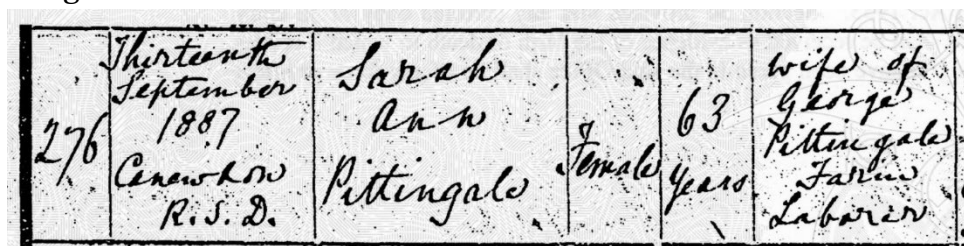 276
Thirteenth
September
1887
Canewdon
R.S.D.
Sarah
Ann
Pittingale
Female
63
Years
wife of
George
Pittingale
Farm
Laborer